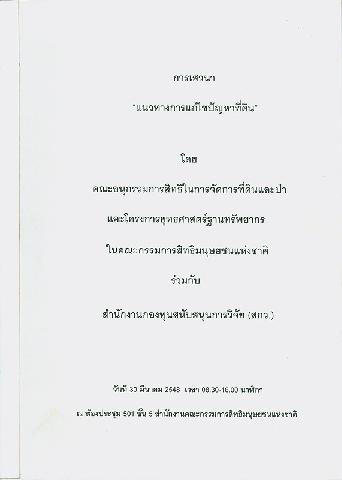 การเสวนา
"แนวทางการแก้ไขปัญหาที่ดิน"
โดย
คณะอนุกรรมการสิทธิในการจัดการที่ดินและป่า
และโครงการยุทธศาสตร์ฐานทรัพยากร
ในคณะกรรมการสิทธิมนุษยชนแห่งชาติ
ร่วมกับ
สำนักงานกองทุนสนับสนุนการวิจัย (สกว.)
วันที่ 30 มีนาคม 2548 เวลา 08.30-16.00 นาฬิกา
ณ ห้องประชุม 501 ชั้น 5 สำนักงานคณะกรรมการสิทธิมนุษยชนแห่งชาติ